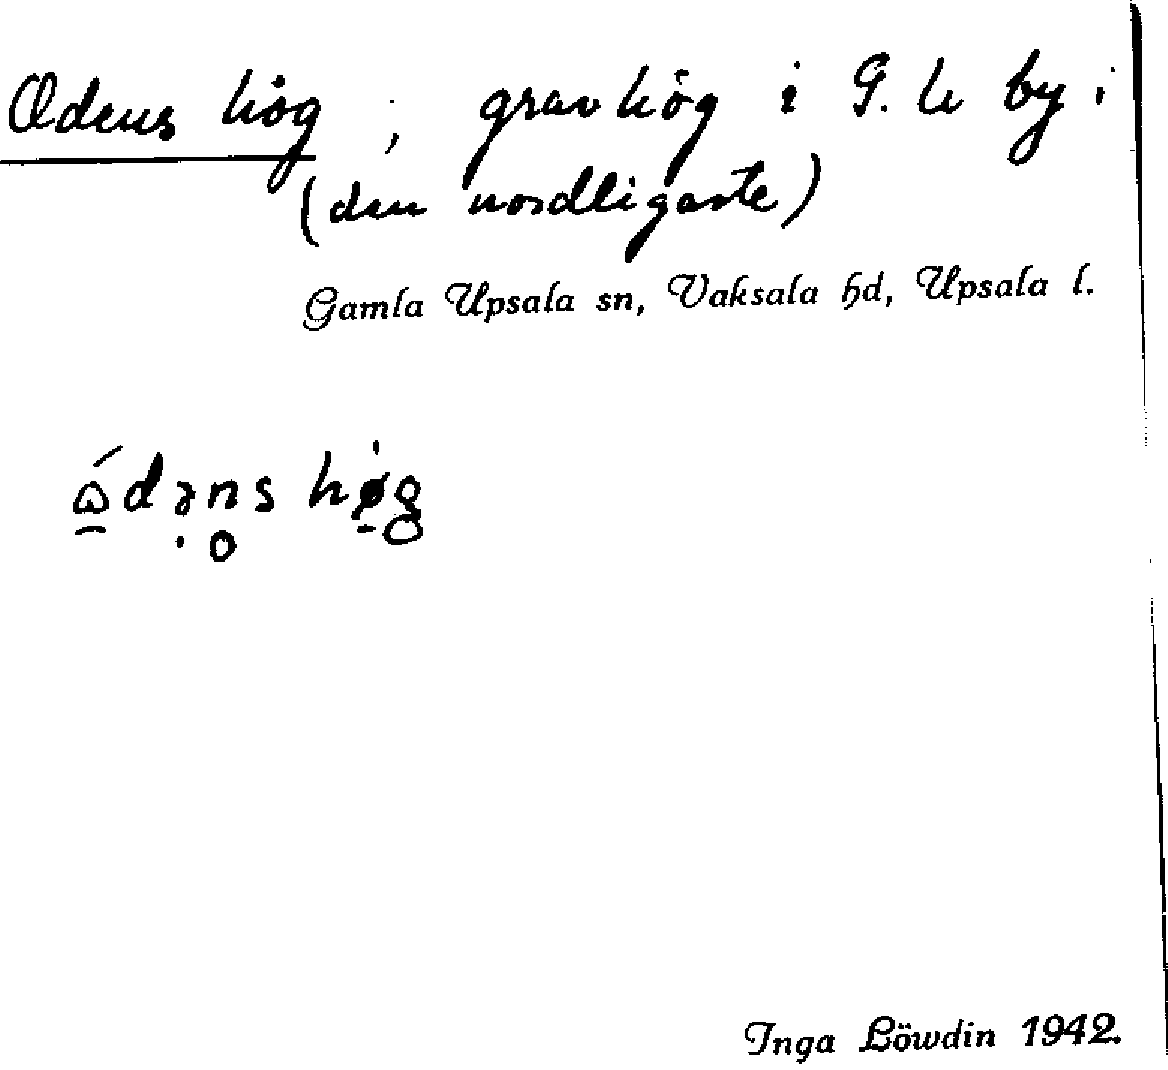 Odens hög ; gravhög i G. U by i
(den nordligaste)
Gamla Upsala sn, Vaksala hd, Upsala l.
ɷ́dəns høg
Inga Löwdin 1942.